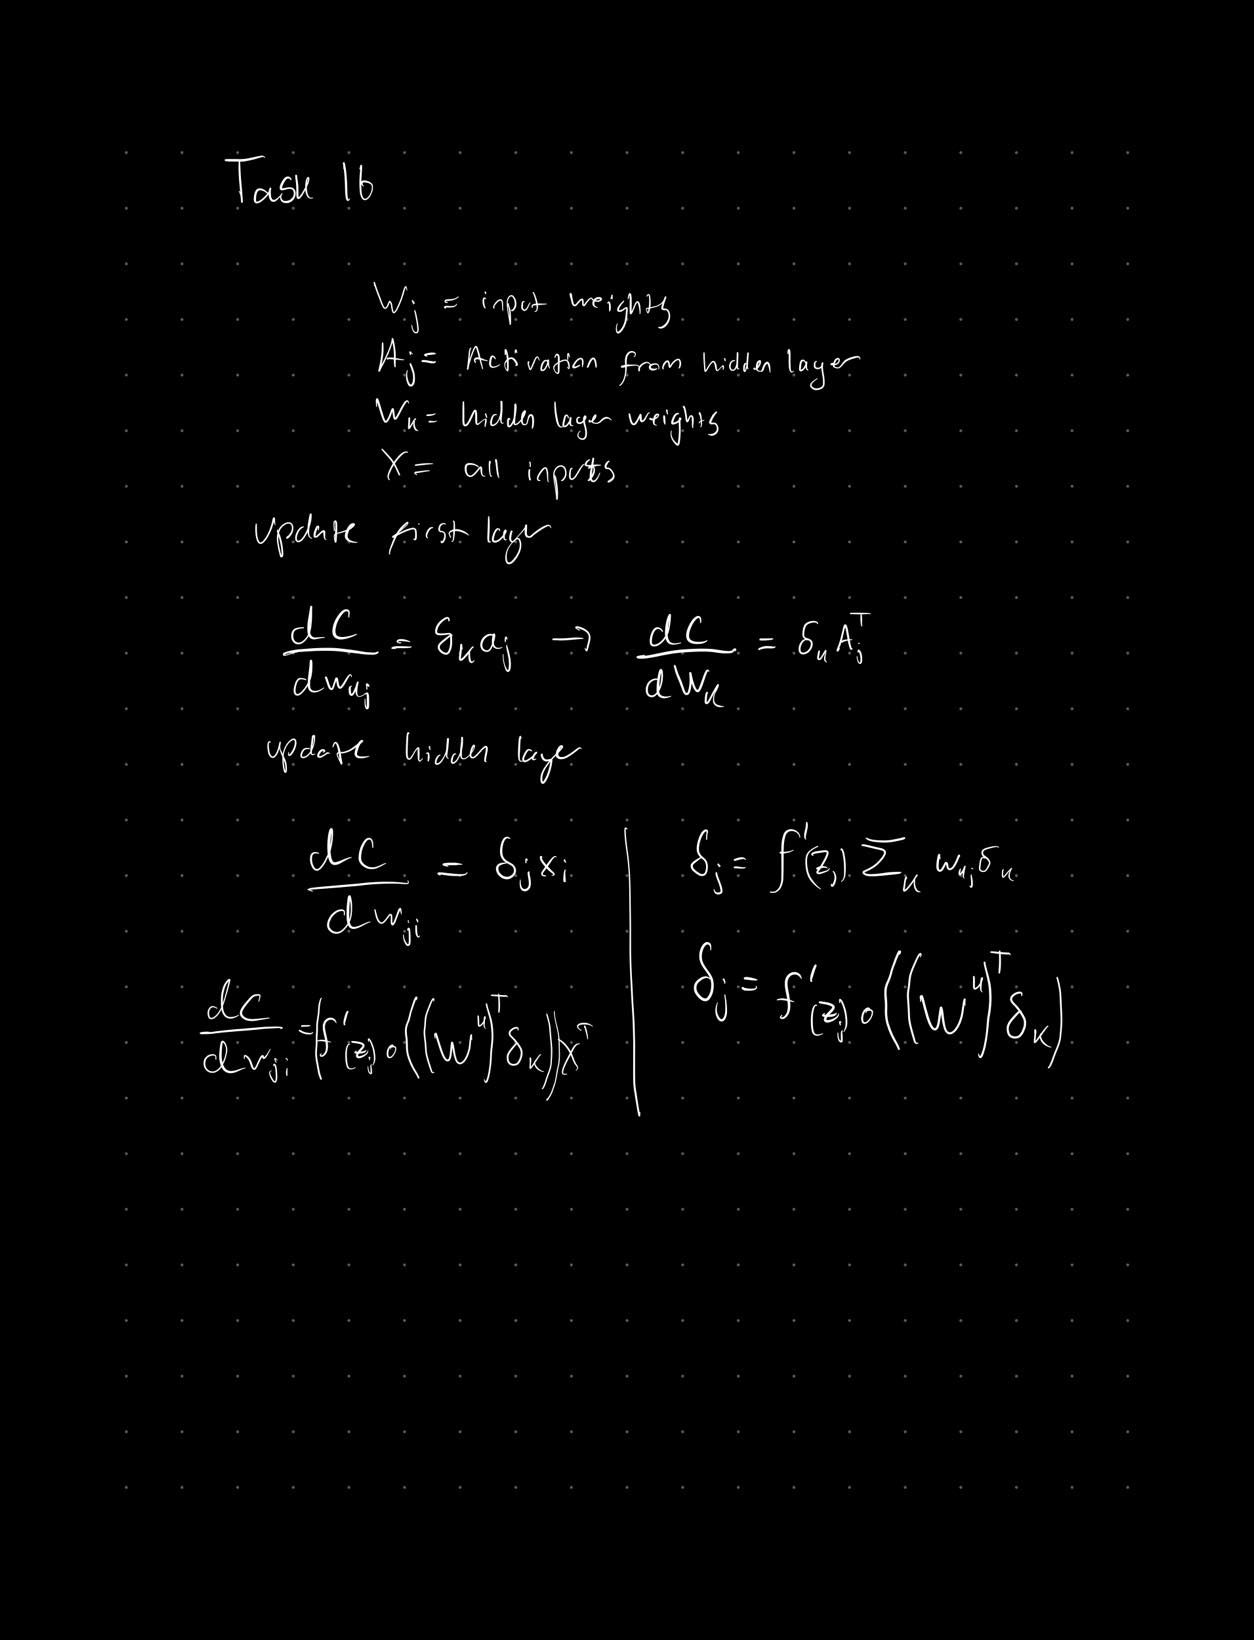 Task 1b
W_j = input weights
A_j = Activation from hidden layer
W_k = hidden layer weights
X = all inputs
update first layer
dC/dw_kj = δ_k a_j → dC/dW_k = δ_k A_j^T
update hidden layer
dC/dw_ji = δ_j x_i
dC/dw_ji = (f'(z_j) ∘ ((W^k)^T δ_k)) X^T
δ_j = f'(z_j) Σ_k w_kj δ_k
δ_j = f'(z_j) ∘ ((W^k)^T δ_k)